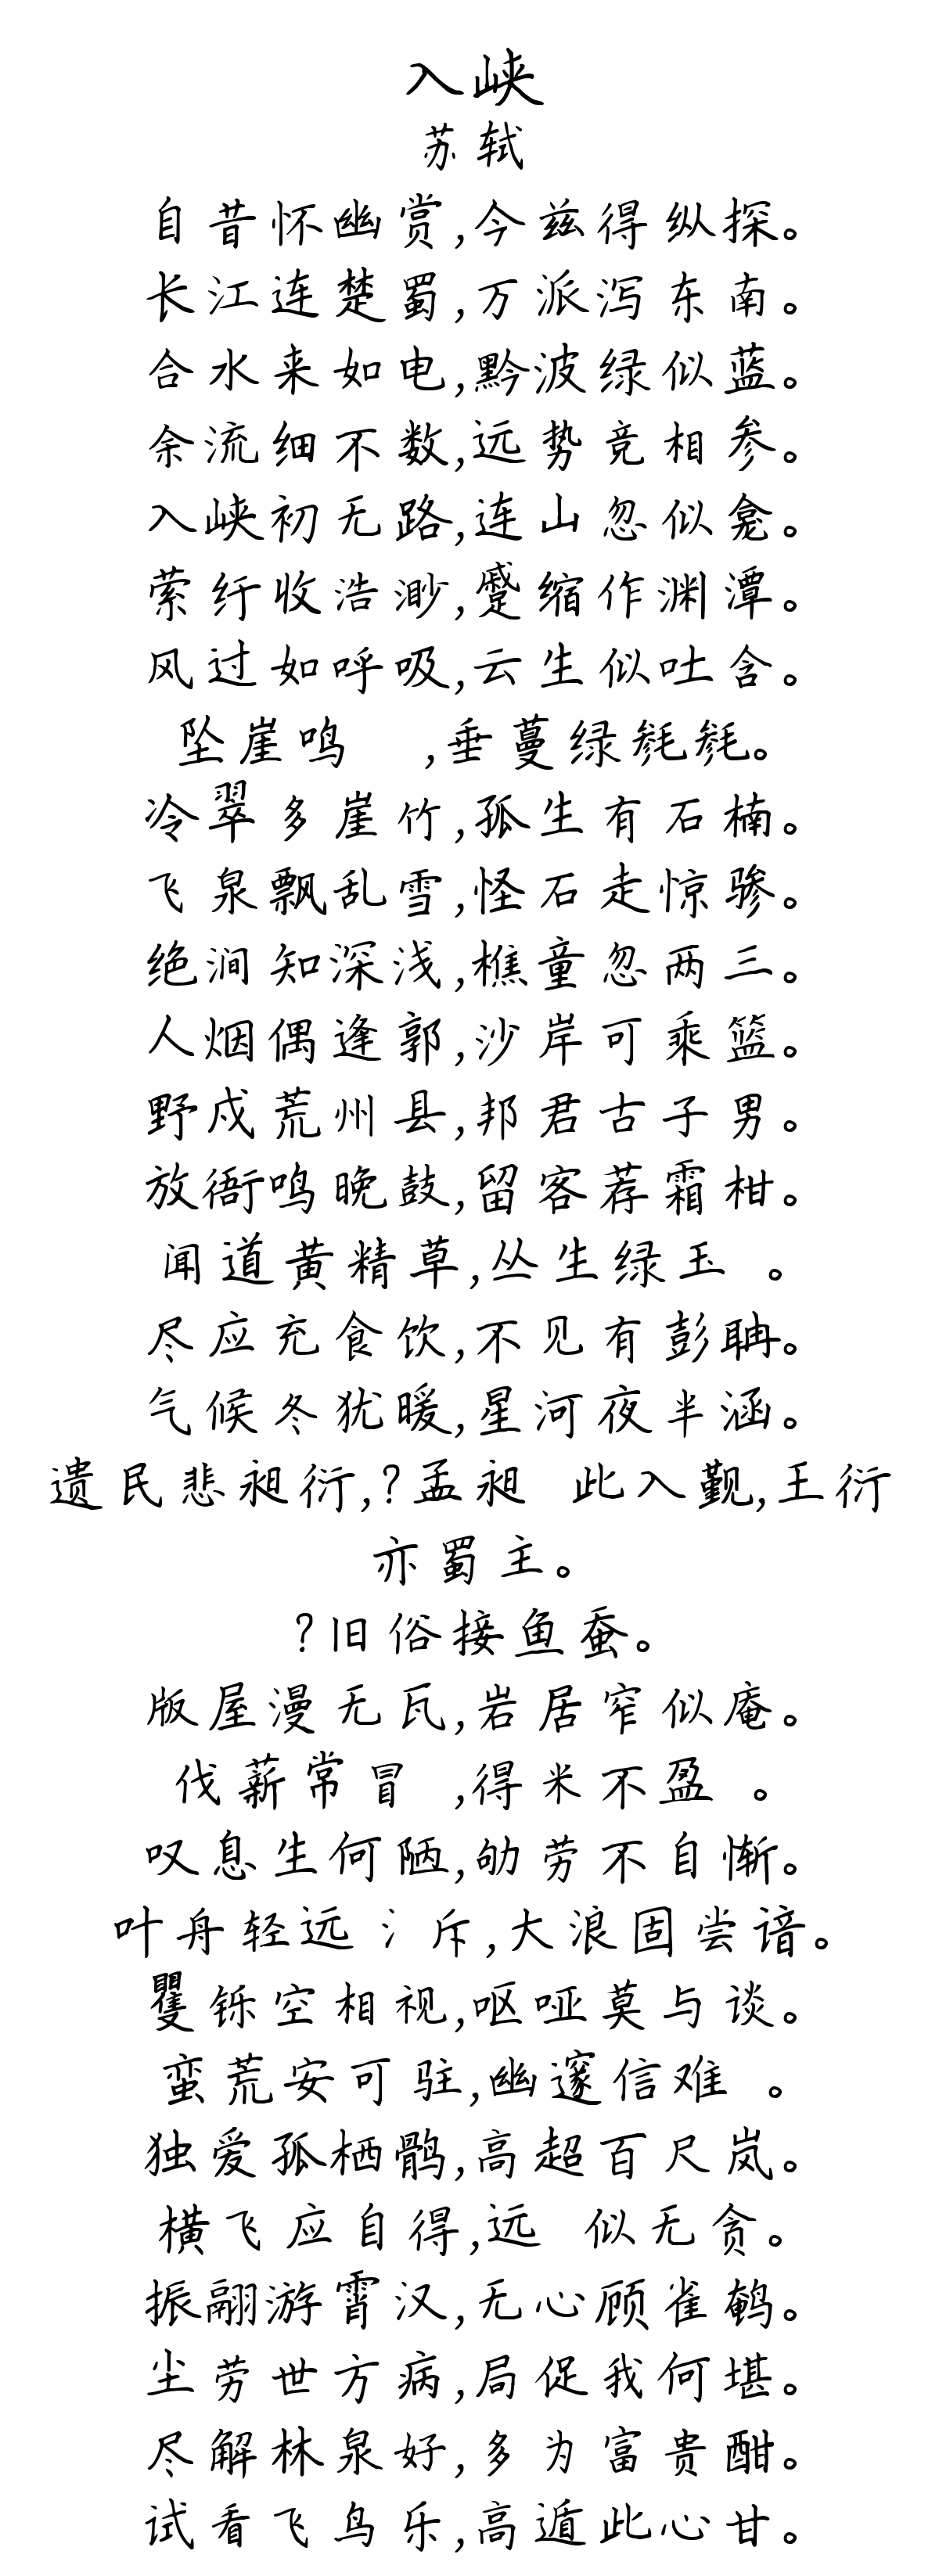 入峡
苏轼
自昔怀幽赏,今兹得纵探。
长江连楚蜀,万派泻东南。
合水来如电,黔波绿似蓝。
余流细不数,远势竞相参。
入峡初无路,连山忽似龛。
萦纡收浩渺,蹙缩作渊潭。
风过如呼吸,云生似吐含。
坠崖鸣 ,垂蔓绿毵毵。
冷翠多崖竹,孤生有石楠。
飞泉飘乱雪,怪石走惊骖。
绝涧知深浅,樵童忽两三。
人烟偶逢郭,沙岸可乘篮。
野戍荒州县,邦君古子男。
放衙鸣晚鼓,留客荐霜柑。
闻道黄精草,丛生绿玉 。
尽应充食饮,不见有彭聃。
气候冬犹暖,星河夜半涵。
遗民悲昶衍,?孟昶 此入觐,王衍
亦蜀主。
?旧俗接鱼蚕。
版屋漫无瓦,岩居窄似庵。
伐薪常冒 ,得米不盈 。
叹息生何陋,劬劳不自惭。
叶舟轻远氵斥,大浪固尝谙。
矍铄空相视,呕哑莫与谈。
蛮荒安可驻,幽邃信难 。
独爱孤栖鹘,高超百尺岚。
横飞应自得,远 似无贪。
振翮游霄汉,无心顾雀鹌。
尘劳世方病,局促我何堪。
尽解林泉好,多为富贵酣。
试看飞鸟乐,高遁此心甘。